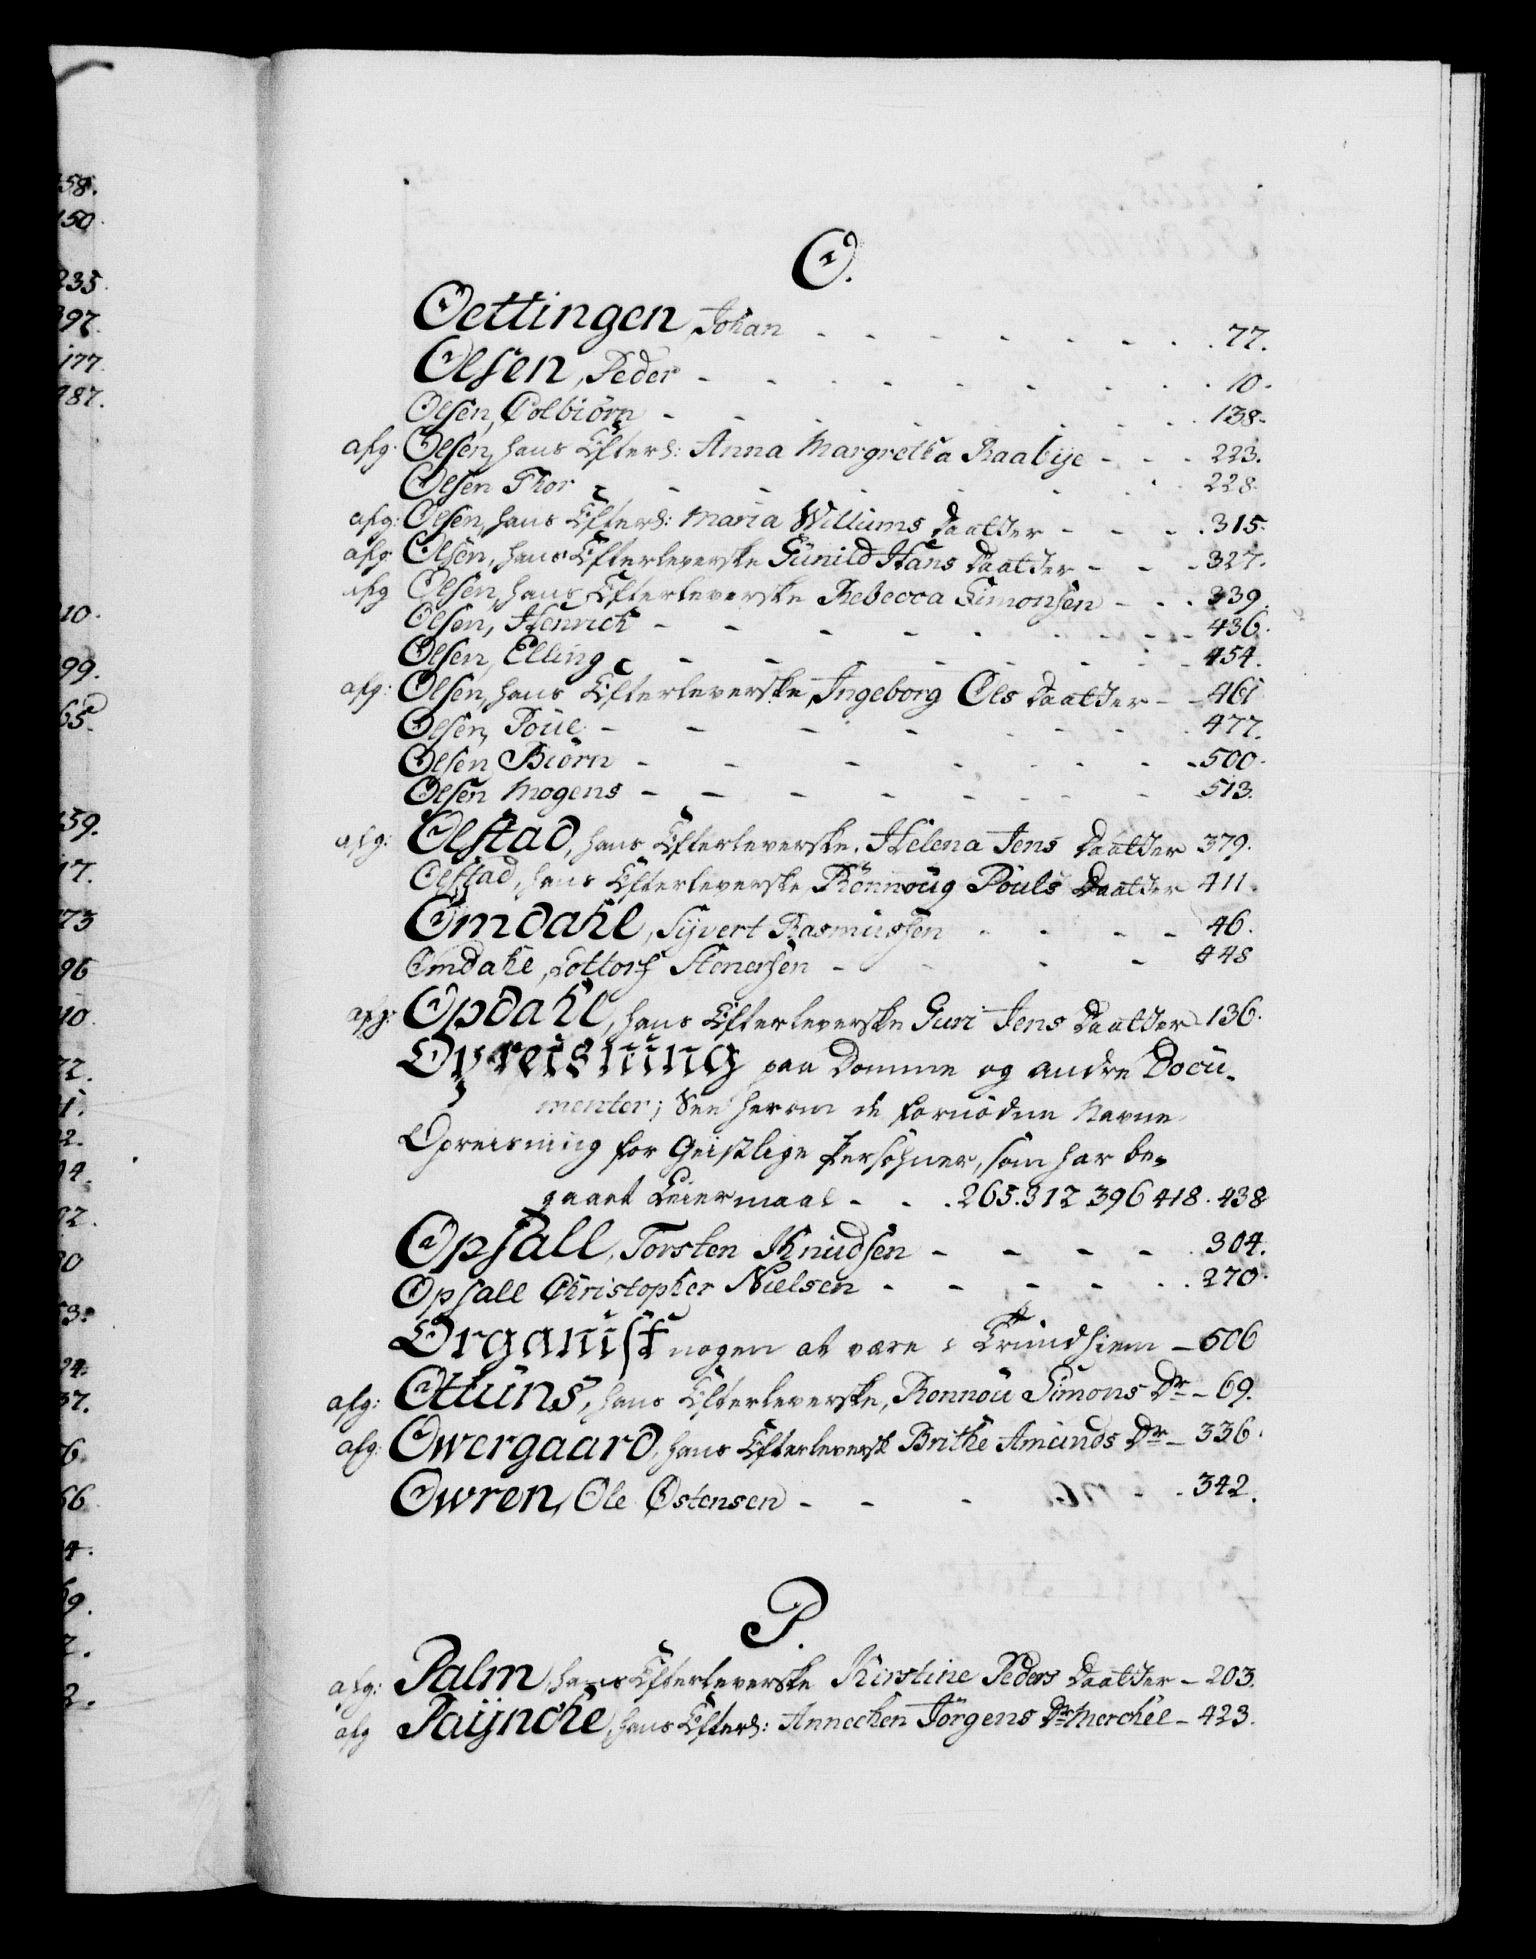 O.
Oettingen, Johan - - - - - - - 77.
Olsen, Peder - - - - - - - 10.
Olsen, Colbiörn - - - - - - 138.
afg: Olsen, hans Efterl: Anna Margretha Raabye - - - 223.
Olsen Thor - - - - - - 228.
afg: Olsen, hans Efterl: Maria Willums Daatter - - - 315.
afg Olsen, hans Efterleverske Gunild Hans Daatter - - - 327.
afg Olsen, hans Efterleverske Rebecca Simonsen - - - 339.
Olsen, Henrich - - - - - - - 436.
Olsen, Elling - - - - - - - 454.
afg: Olsen, hans Efterleverske, Ingeborg Ols Daatter - - 461
Olsen, Poul - - - - - - - 477.
Olsen Biörn - - - - - - - 500.
Olsen Mogens - - - - - - - 513.
afg: Olstad, hans Efterleverske, Helena Jens Daatter 379.
Olstad, hans Efterleverske Rönnoug Pouls Daatter 411.
Omdahl, Syvert Rasmussen - - - - 46.
Omdahl, Stenersen - - - - 448
afg: Opdahl, hans Efterleverske Guri Jens Daatter - 136.
Opreisning paa Domme og andre Docu-
menter; See herom de fornödne Navne
Opreisning for Geistlige Persohner, som har be-
gaaet Leiermaal - - . 265. 312 396 418. 438
Opsall, Torsten Knudsen - - - - 304.
Opsall Christopher Nielsen - - - - - 270.
Organist nogen at være i Trundhiem - 506
afg: Otuns, hans Efterleverske, Ronnou Simons Dr - 69.
afg. Owergaard, hans Efterleversk Brithe Amunds Dr - 336.
Owren, Ole Østensen - - - - 342.
P.
afg: Palm, hans Efterleverske Kirstine Peders Daatter - 203.
afg Paÿnche, hans Efterl: Annechen Jörgens Dr Merchel - 423.
58.
150
235
97.
177
487.
10.
99.
65.
59.
17.
73
96
10.
72.
1.
2.
4.
2.
0
3.
24.
37.
6
66
4.
9.
2.